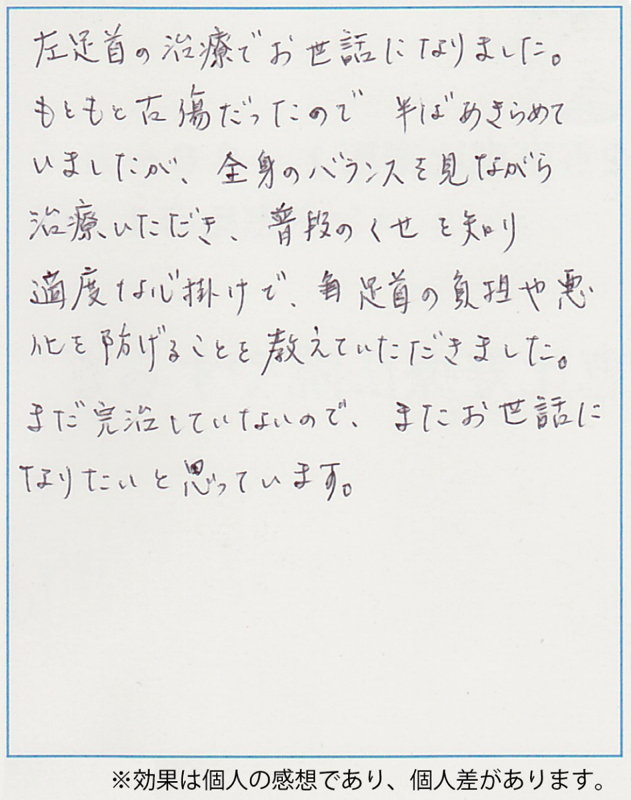 左足首の治療でお世話になりました。
もともと古傷だったので 半ばあきらめて
いましたが、全身のバランスを見ながら
治療いただき、普段のくせを知り
適度な心掛けで、足首の負担や悪
化を防げることを教えていただきました。
まだ完治していないので、またお世話に
なりたいと思っています。
※効果は個人の感想であり、個人差があります。